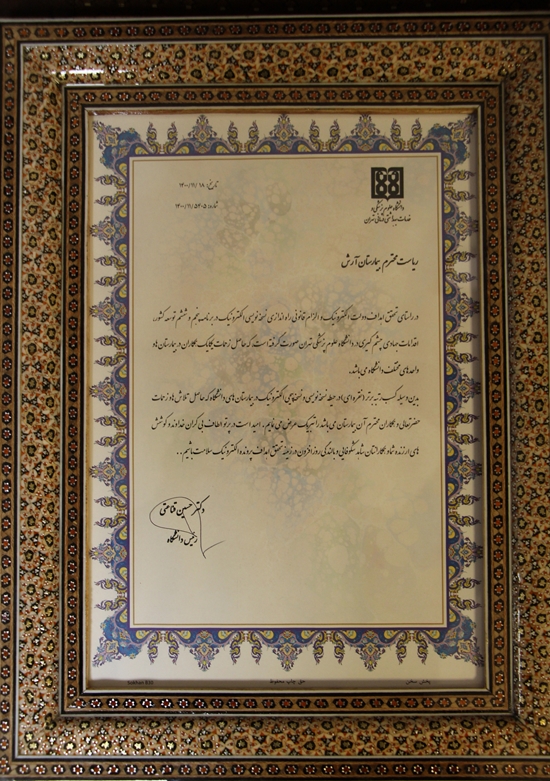 تاریخ: ۱۴۰۰/۱۱/۱۸
شماره: ۱۴۰۰/۱۱/۵۲۰۵
دانشگاه علوم پزشکی و
خدمات بهداشتی درمانی تهران
ریاست محترم بیمارستان آرش
در راستای تحقق اهداف دولت الکترونیک و الزام قانونی راه اندازی نسخه نویسی الکترونیک در برنامه پنجم و ششم توسعه کشور،
اقدامات جهادی چشم گیری در دانشگاه علوم پزشکی تهران صورت گرفته است، که حاصل زحمات یکایک همکاران در بیمارستان ها و
واحدهای مختلف دانشگاه می باشد.
بدین وسیله کسب رتبه برتر (نقره ای) در حیطه نسخه نویسی و نسخه پیچی الکترونیک در بیمارستان های دانشگاه که حاصل تلاش ها و زحمات
حضرتعالی و همکاران محترم آن بیمارستان می باشد را تبریک عرض می نمایم. امید است در پرتو الطاف بی کران خداوند و کوشش
های ارزنده شما و همکارانتان شاهد شکوفایی و بالندگی روزافزون در زمینه تحقق اهداف پرونده الکترونیک سلامت باشیم..
دکتر حسین قناعتی
رئیس دانشگاه
حق چاپ محفوظ